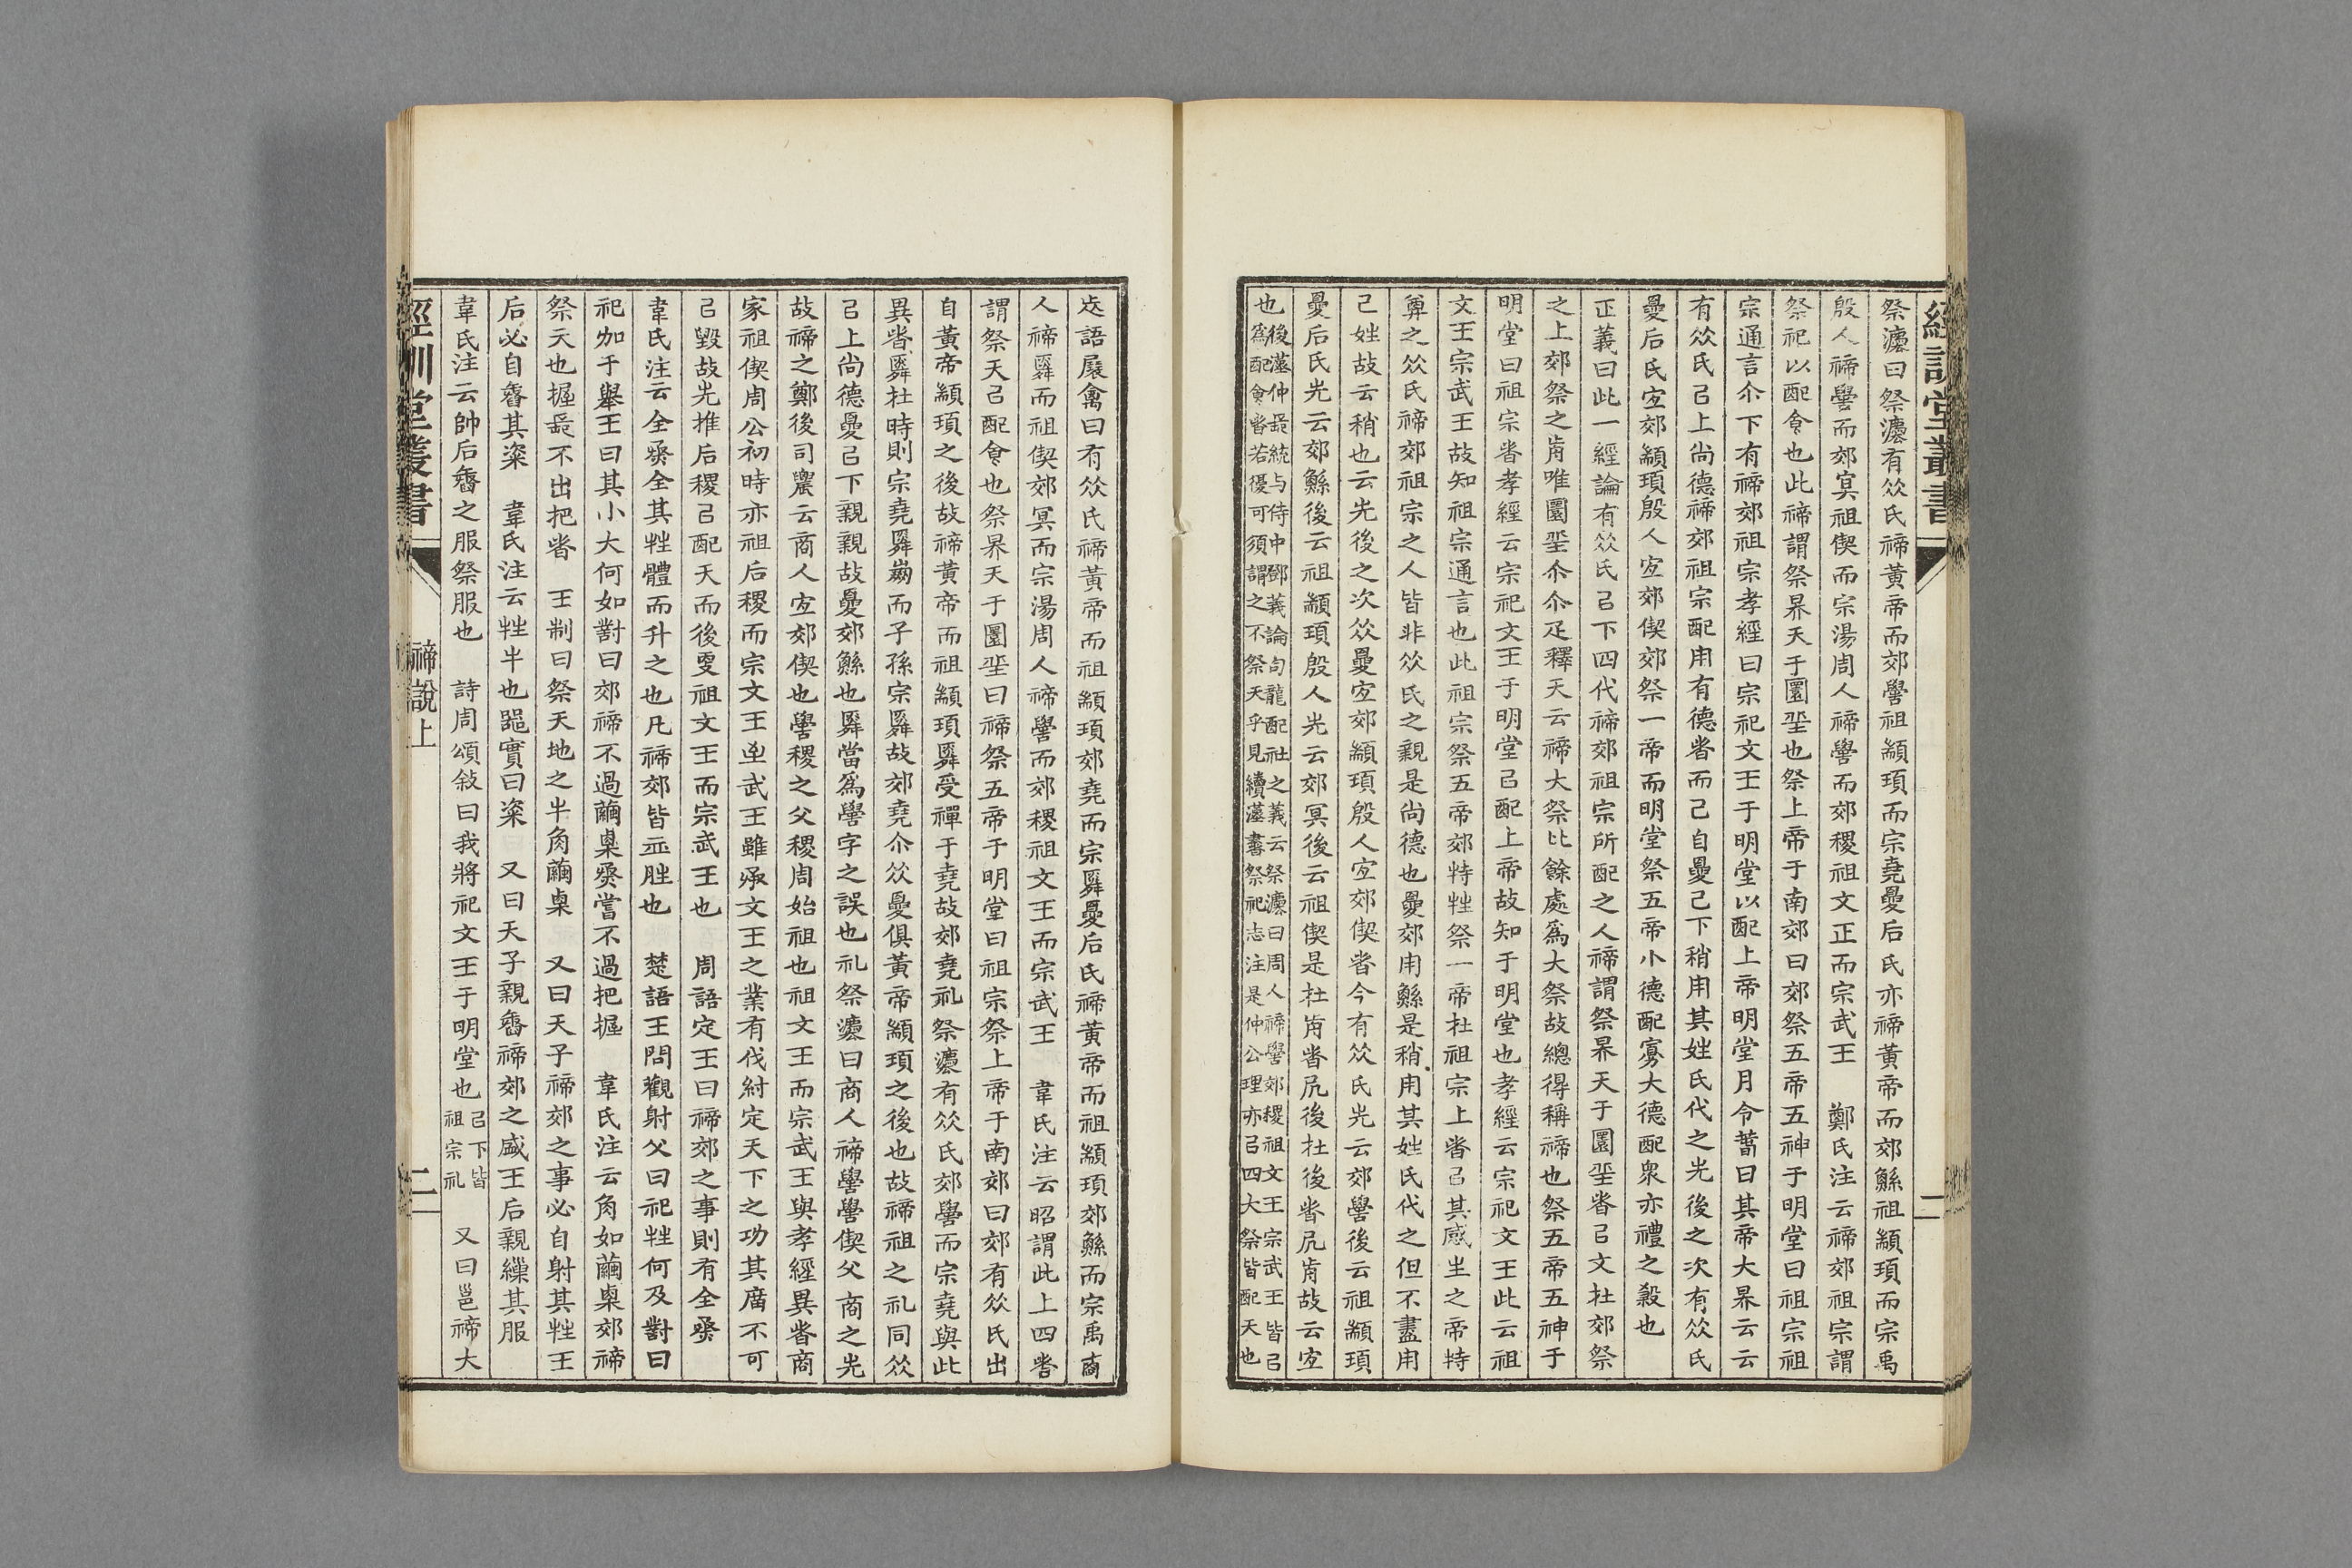 經訓堂叢書
二
祭灋曰祭灋有众氏禘黃帝而郊嚳祖顓頊而宗堯夓后氏亦禘黃帝而郊鯀祖顓頊而宗禹
殷人禘嚳而郊冥祖偰而宗湯周人禘嚳而郊稷祖文王而宗武王　鄭氏注云禘郊祖宗謂
祭祀以配食也此禘謂祭昦天于圜丠也祭上帝于南郊曰郊祭五帝五神于明堂曰祖宗祖
宗通言尒下有禘郊祖宗孝經曰宗祀文王于明堂以配上帝明堂月令萅曰其帝大昦云云
有众氏㠯上尚德禘郊祖宗配用有德者而已自夓已下稍用其姓氏代之先後之次有众氏
夓后氏宐郊顓頊殷人宐郊偰郊祭一帝而明堂祭五帝小德配寡大德配衆亦禮之殺也
正義曰此一經論有众氏㠯下四代禘郊祖宗所配之人禘謂祭昦天于圜丠者㠯文在郊祭
之上郊祭之歬唯圜丠尒尒疋釋天云禘大祭比餘處爲大祭故總得稱禘也祭五帝五神于
明堂曰祖宗者孝經云宗祀文王于明堂㠯配上帝故知于明堂也孝經云宗祀文王此云祖
文王宗武王故知祖宗通言也此祖宗祭五帝郊特牲祭一帝在祖宗上者㠯其感生之帝特
尊之众氏禘郊祖宗之人皆非众氏之親是尚德也夓郊用鯀是稍用其姓氏代之但不盡用
己姓故云稍也云先後之次众夓宐郊顓頊殷人宐郊偰者今有众氏先云郊嚳後云祖顓頊
夓后氏先云郊鯀後云祖顓頊殷人先云郊冥後云祖偰是在歬者凥後在後者凥歬故云宐
也後漢仲長統与侍中鄧義論句龍配社之義云祭灋曰周人禘嚳郊稷祖文王宗武王皆㠯
爲配食者若優可須謂之不祭天乎見續漢書祭祀志注是仲公理亦㠯四大祭皆配天也
㫺語展禽曰有众氏禘黃帝而祖顓頊郊堯而宗舜夓后氏禘黃帝而祖顓頊郊鯀而宗禹商
人禘舜而祖偰郊冥而宗湯周人禘嚳而郊稷祖文王而宗武王　韋氏注云昭謂此上四者
謂祭天㠯配食也祭昦天于圜丠曰禘祭五帝于明堂曰祖宗祭上帝于南郊曰郊有众氏出
自黃帝顓頊之後故禘黃帝而祖顓頊舜受禪于堯故郊堯礼祭灋有众氏郊嚳而宗堯與此
異者舜在時則宗堯舜崩而子孫宗舜故郊堯尒众夓俱黃帝顓頊之後也故禘祖之礼同众
㠯上尚德夓㠯下親親故夓郊鯀也舜當爲嚳字之誤也礼祭灋曰商人禘嚳嚳偰父商之先
故禘之鄭後司農云商人宐郊偰也嚳稷之父稷周始祖也祖文王而宗武王與孝經異者商
家祖偰周公初時亦祖后稷而宗文王至武王雖承文王之業有伐紂定天下之功其廟不可
㠯毀故先推后稷㠯配天而後更祖文王而宗武王也　周語定王曰禘郊之事則有全烝
韋氏注云全烝全其牲體而升之也凡禘郊皆血腥也　楚語王問觀射父曰祀牲何及對曰
祀加于舉王曰其小大何如對曰郊禘不過繭㮚烝嘗不過把握　韋氏注云角如繭㮚郊禘
祭天也握長不出把者　王制曰祭天地之牛角繭㮚　又曰天子禘郊之事必自射其牲王
后必自舂其粢　韋氏注云牲牛也器實曰粢　又曰天子親舂禘郊之盛王后親繅其服
韋氏注云帥后舂之服祭服也　詩周頌敍曰我將祀文王于明堂也㠯下皆祖宗礼　又曰邕禘大
經訓堂叢書
禘說上
二